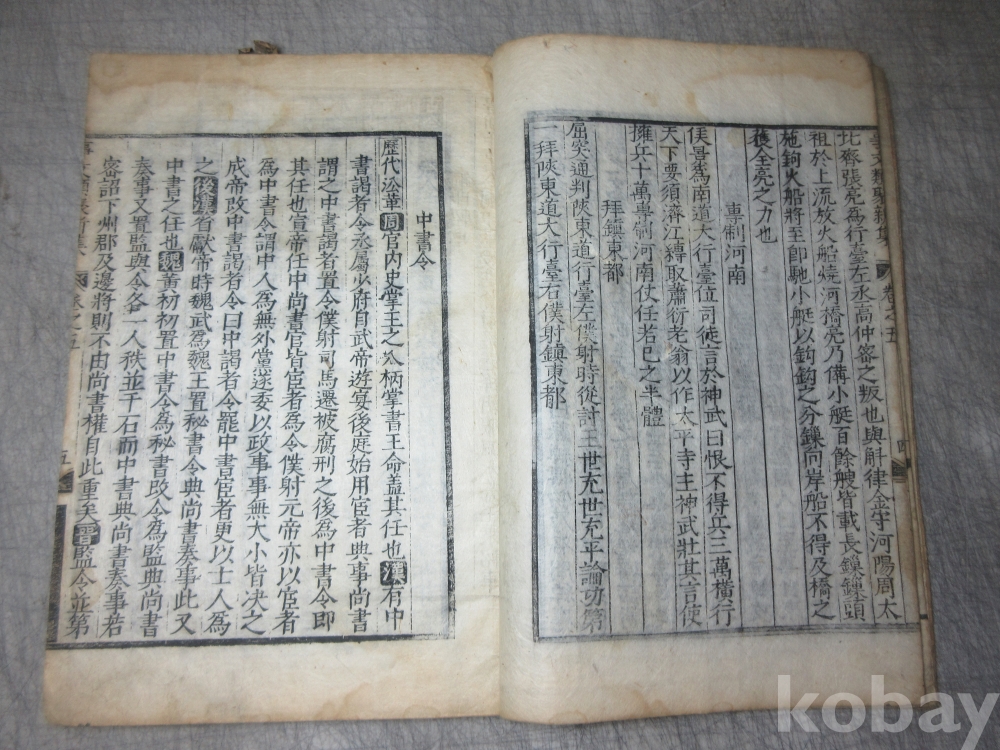 事文類聚新集 卷之五 四
北齊張亮爲行臺左丞高仲密之叛也與斛律金守河陽周太
祖於上流放火船燒河橋亮乃備小艇百餘艘皆載長鏁鏁頭
施鉤火船將至即馳小艇以鉤鉤之分鏁向岸船不得及橋之
獲全亮之力也
專制河南
侯景爲南道大行臺位司徒言於神武曰恨不得兵三萬橫行
天下要須濟江縛取蕭衍老翁以作太平寺主神武壯其言使
擁兵十萬專制河南仗任若已之半體
拜鎮東都
屈突通判陜東道行臺左僕射時從討王世充世充平論功第
一拜陜東道大行臺右僕射鎮東都
中書令
歷代沿革周官內史掌王之八柄掌書王命蓋其任也漢有中
書謁者令丞屬少府自武帝遊宴後庭始用宦者典事尚書
謂之中書謁者置令僕射司馬遷被腐刑之後為中書令即
其任也宣帝任中尚書官皆宦者爲令僕射元帝亦以宦者
為中書令謂中人為無外黨遂委以政事事無大小皆決之
成帝改中書謁者令曰中謁者令罷中書宦者更以士人爲
之後漢省獻帝時魏武爲魏王置秘書令典尚書奏事此又
中書之任也魏黃初初置中書令為秘書改令為監典尚書
奏事又置監與令各一人秩並千石而中書典尚書奏事若
密詔下州郡及邊將則不由尚書權自此重矣晉監令並第
卷之五 五
kobay